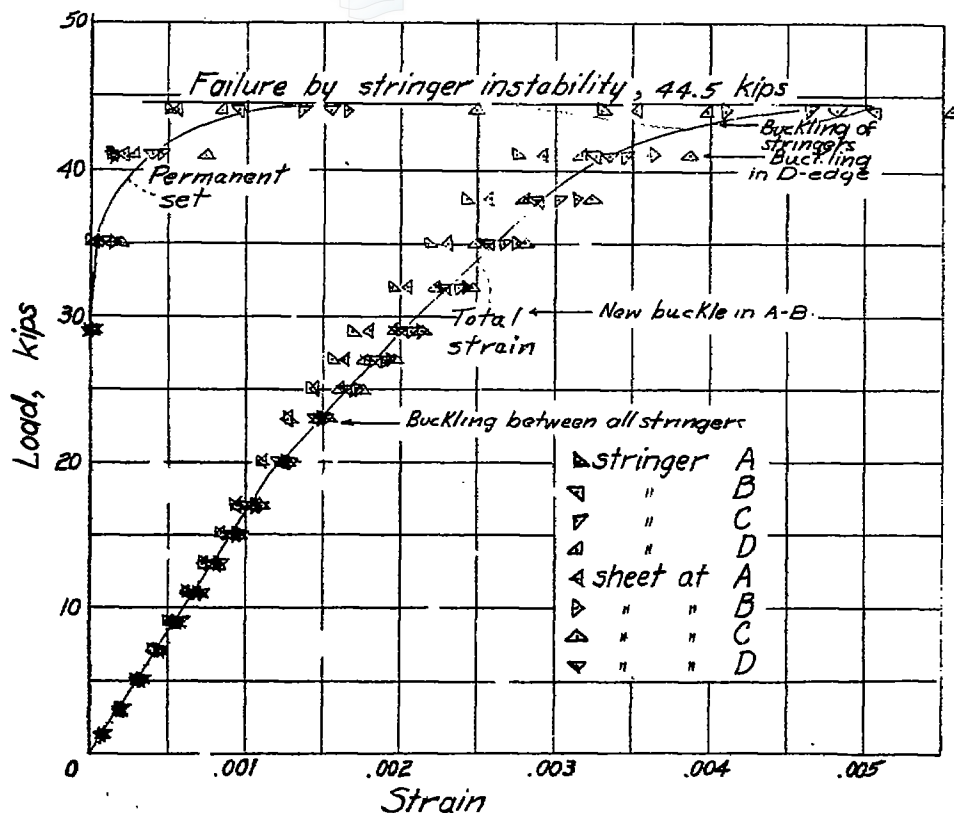 50
Failure by stringer instability, 44.5 kips
Buckling of
stringers
Buckling
in D-edge
40
Permanent
set
30
New buckle in A-B.
Total
strain
Load, kips
Buckling between all stringers
20
stringer A
" B
" C
" D
sheet at A
" " B
" " C
" " D
10
0 .001 .002 .003 .004 .005
Strain